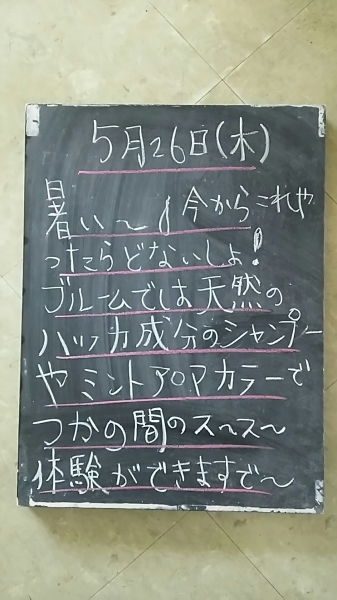 5月26日(木)
暑い〜! 今からこれや
ったらどないしょ!
ブルームでは天然の
ハッカ成分のシャンプー
やミントアロマカラーで
つかの間のス〜ス〜
体験ができますで〜